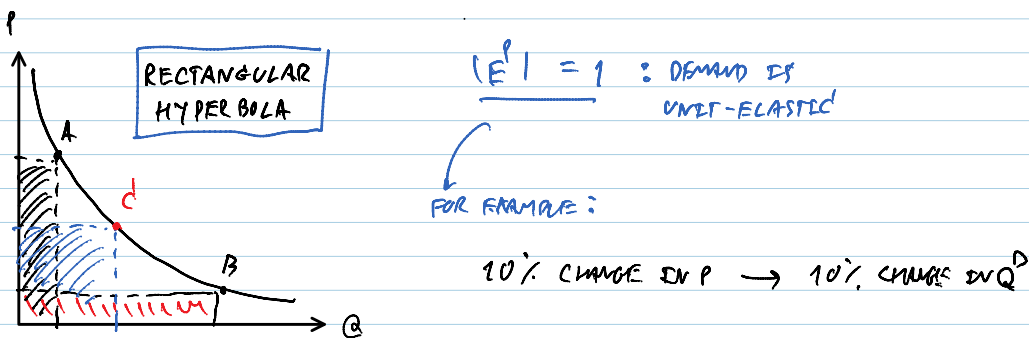 P
RECTANGULAR
HYPERBOLA
|E^P| = 1 : DEMAND IS
UNIT-ELASTIC
A
C
FOR EXAMPLE:
B
10% CHANGE IN P → 10% CHANGE IN Q^D
Q